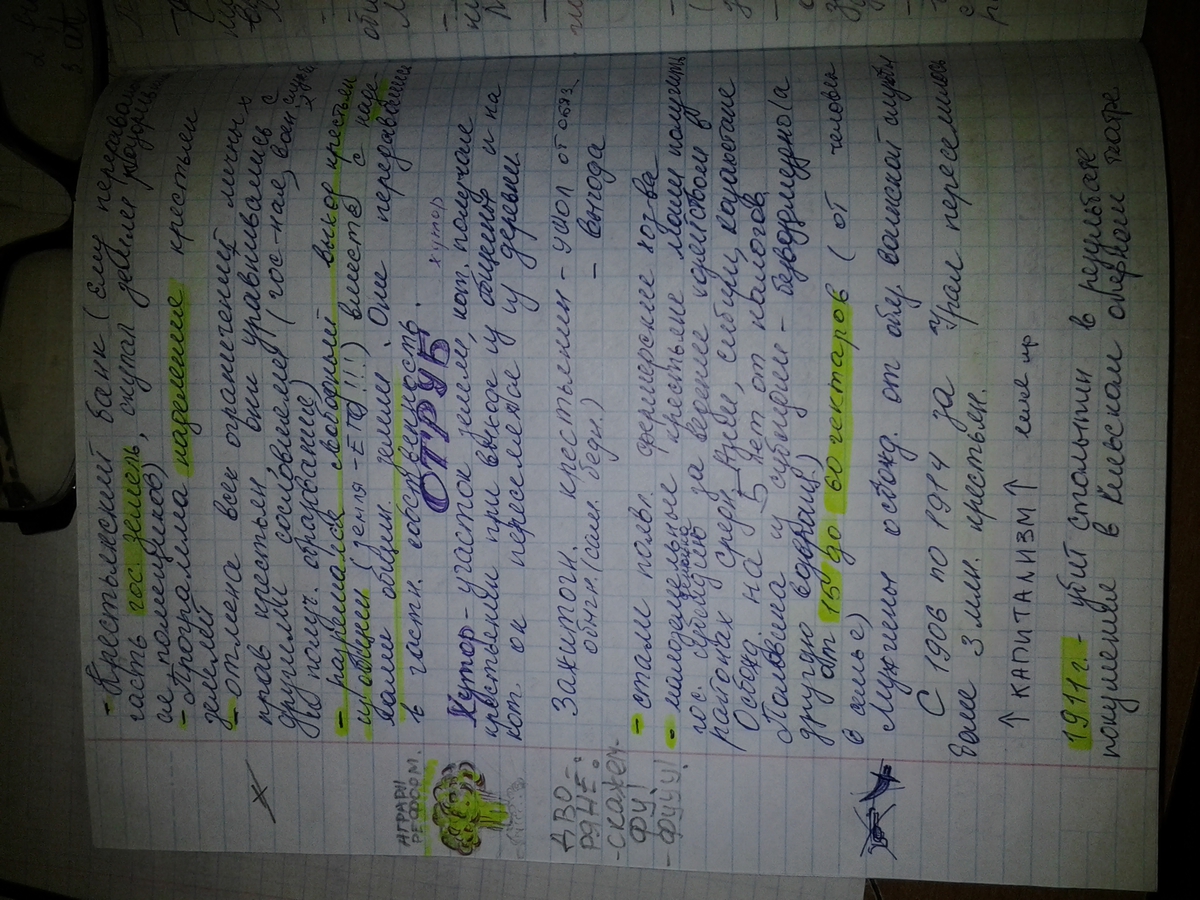 - Крестьянский банк (ему передавали
часть гос. земель, скупал земли разорившихся
помещиков)
- Программа наделение крестьян
землей
- отмена всех ограничений личных
прав крестьян они уравнивались с
другими сословиями (гос-ная, воен служба
получ. образование)
- разрешался свободный выход крестьян
из общины (земля - ЕГО!!!) вместе с
лами общин. земли. Они передавались
в частн. собственность.
АГРАРН
РЕФОРМ.
ОТРУБ
хутор
Хутор - участок земли, кот. получал
крестьянин при выходе из общины и на
кот. он переселялся из деревни
Зажиточн. крестьянин - ушол от обяз.
общин. (сам. бедн.) - выгода
ДВО
РЯНЕ:
-СКАЖЕМ-
ФУ!
- ФУУУ!
- стали появл. фермерские хоз-ва
- малоземельные крестьяне могли получить
гос. субсидию за ведение хозяйством в
районах средн. Азии, сибири, казахстане
Освобожд. на 5 лет от налогов
Половина из субсидии - безвозмездно (а
другую возвращ.)
от 15 до 60 гектаров (от человек
в семье)
Мужчины освобожд. от общ. воинской службы
С 1906 по 1914 за Урал переселилось
более 3 млн. крестьян.
↑ КАПИТАЛИЗМ ↑
1911 г. - убит столыпин в результате
покушения в Киевском оперном театре